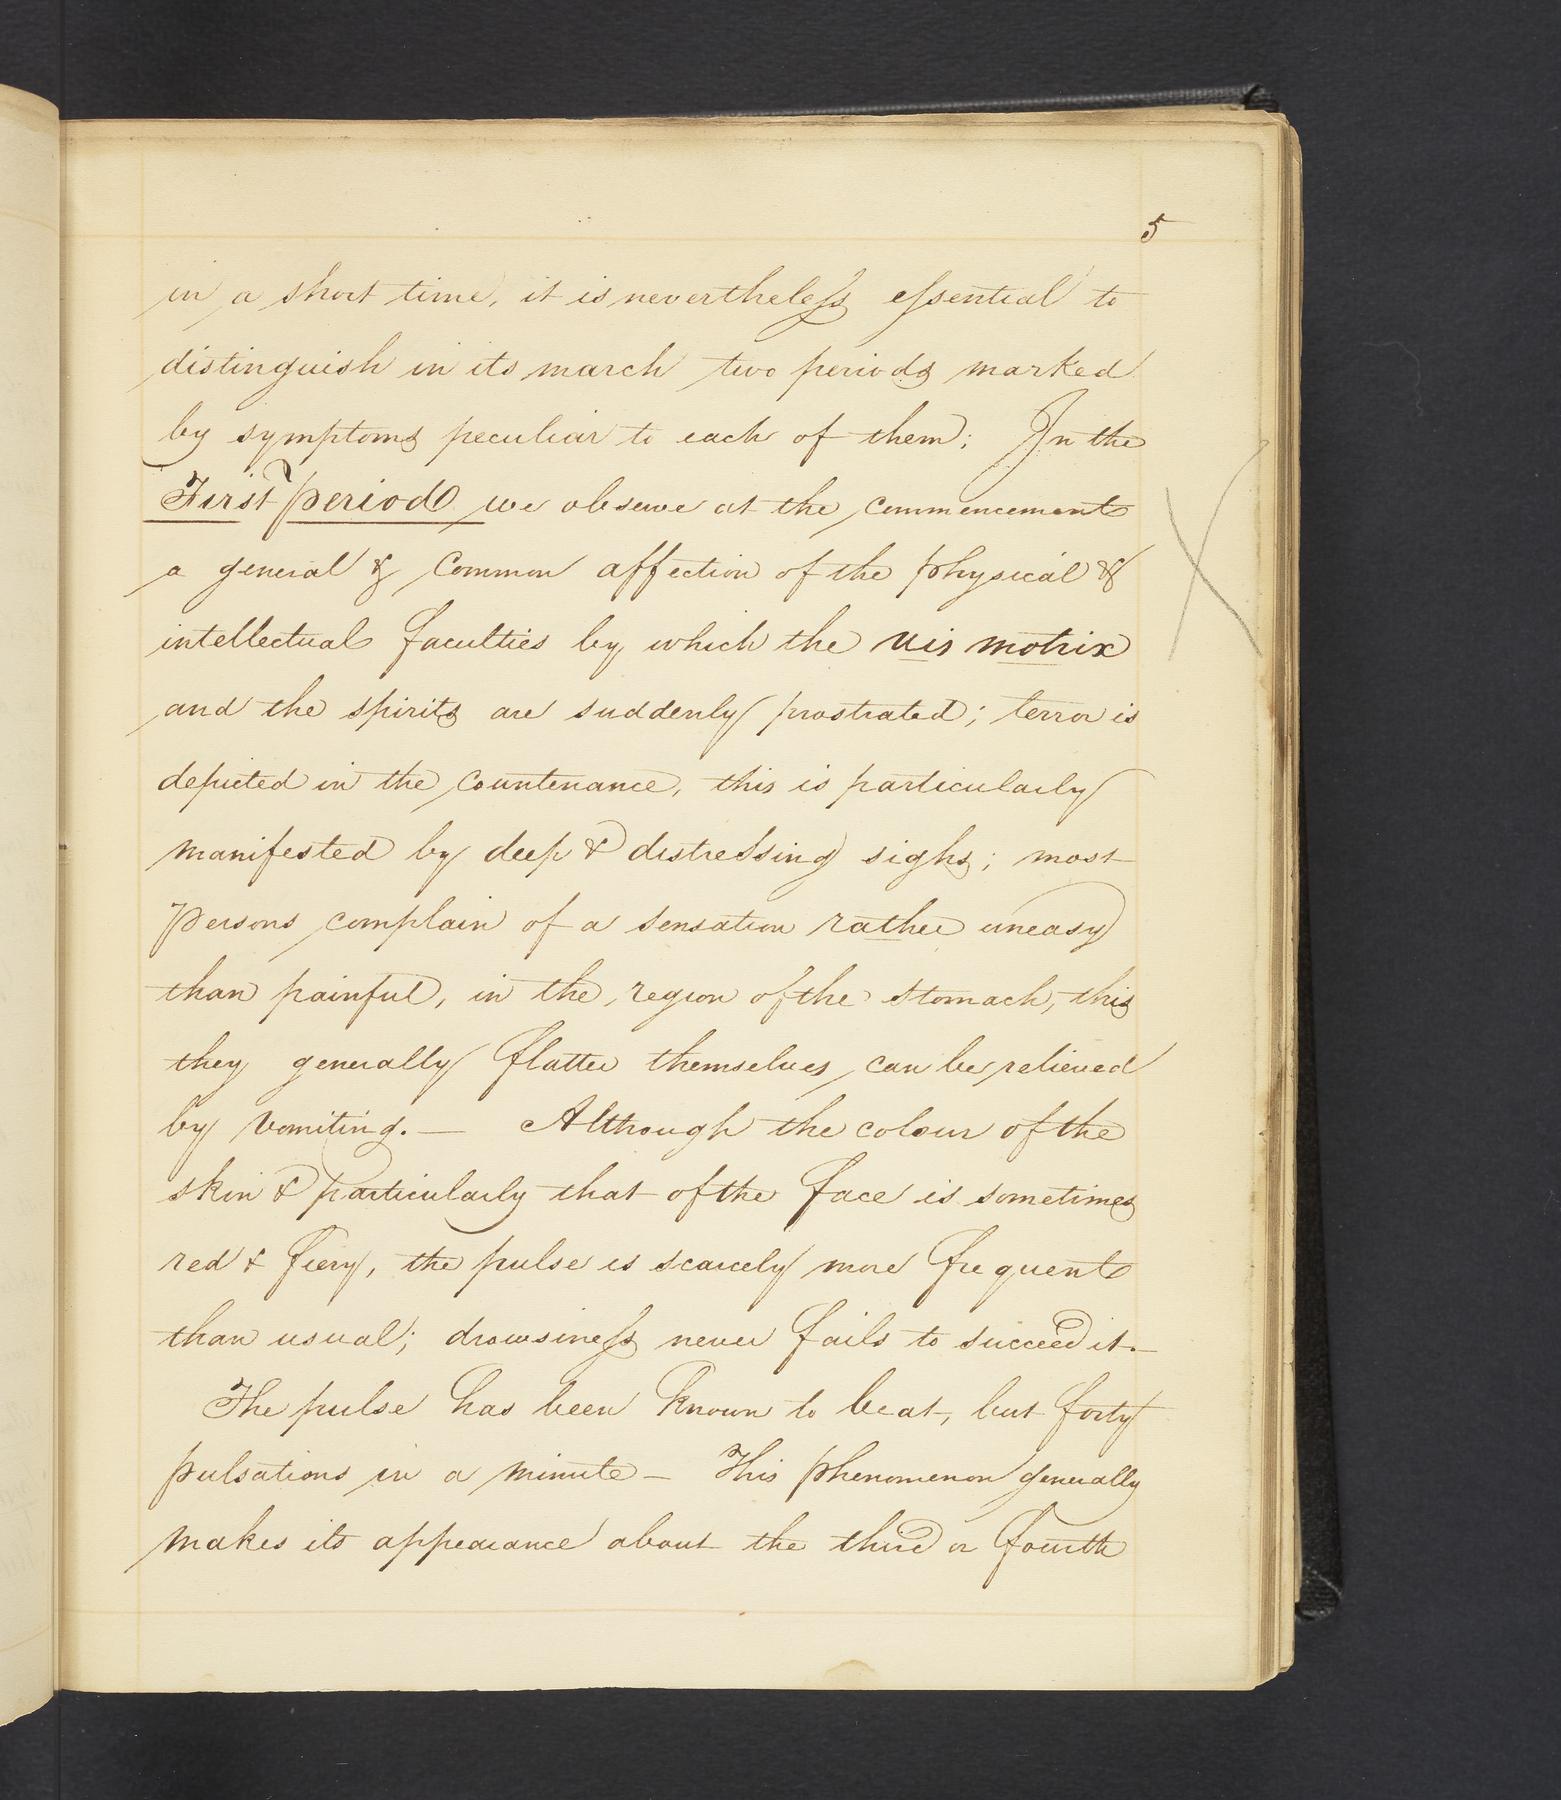 5
in a short time, it is nevertheless essential to
distinguish in its march two periods marked
by symptoms peculiar to each of them; In the
First period we observe at the commencement
a general & common affection of the physical &
intellectual faculties by which the vis motrix
and the spirits are suddenly prostrated; terror is
depicted in the countenance, this is particularly
manifested by deep & distressing sighs; most
Persons complain of a sensation rather uneasy
than painful, in the region of the stomach, this
they generally flatter themselves can be relieved
by vomiting. — Although the colour of the
skin & particularly that of the face is sometimes
red & fiery, the pulse is scarcely more frequent
than usual; drowsiness never fails to succeed it. —
The pulse has been known to beat, but forty
pulsations in a minute — This phenomenon generally
makes its appearance about the third or fourth